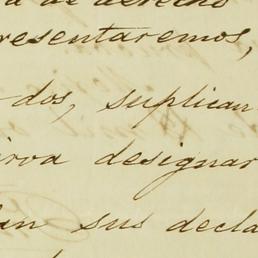 a de derecho
presentaremos,
-dos, suplican
irva designar
an sus decla